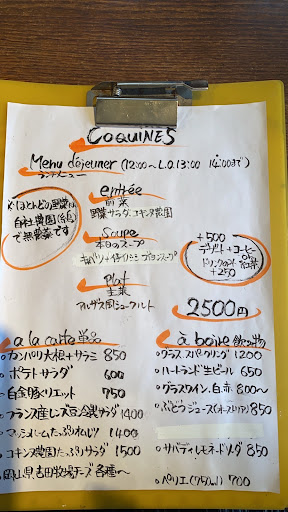 COQUINES
Menu déjeuner (12:00～L.O.13:00 14:00まで)
ランチメニュー
※ほとんどの野菜は
自社農園(糸島)
で無農薬です
entrée
前菜
野菜サラダ、コキンヌ農園
Soupe
本日のスープ
キャベツ+仔リヨン ブイヨンスープ
Plat
主菜
アルザス風シュークルート
+500
デザート+コーヒー
or紅茶
ドリンクのみ
+250
2500円
a la carte 単品
カンパリ大根+サラミ 850
ポテトサラダ 600
白金豚リエット 750
フランス産レンズ豆冷製サラダ 1400
マッシュルームたっぷりオムレツ 1400
コキンヌ農園たっぷりサラダ 1500
岡山県吉田牧場チーズ各種～
à boire 飲み物
グラススパークリング 1200
ハートランド生ビール 650
グラスワイン、白、赤 800～
ぶどうジュース(オーストリア) 850
サバティーレモネードソーダ 850
ペリエ(750ml) 700